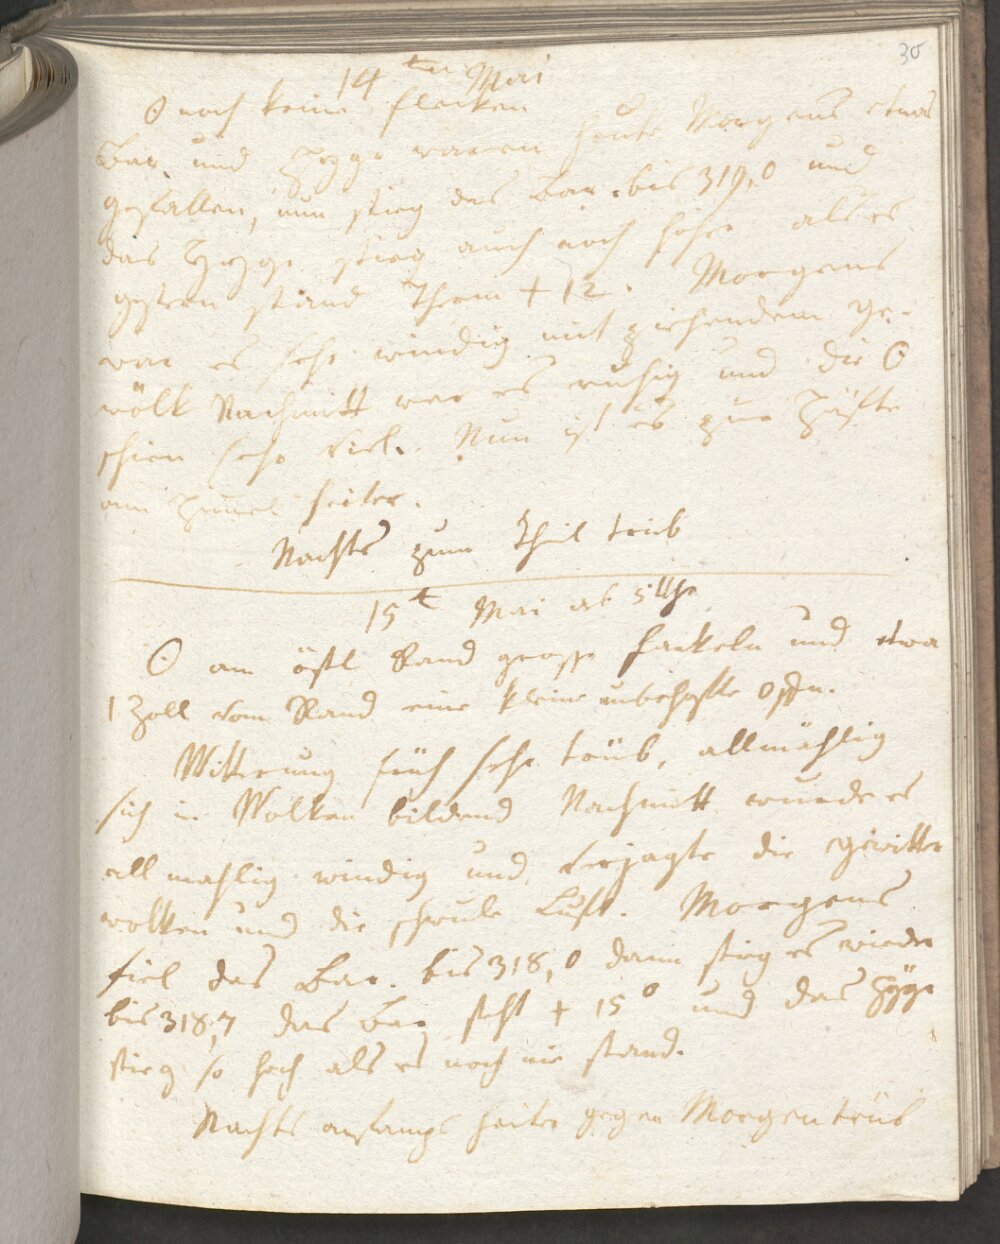 30
14ten Mai
☉ noch keine Flecken
Bar. und Hygr waren heute Morgens etwas
gefallen, nun stieg das Bar. bis 319,0 und
das Hygr. stieg auch noch höher als es
gestern stand Therm + 12. Morgens
war es sehr windig mit ziehendem Ge-
wölk Nachmitt war es ruhig und die ☉
schien sehr viel. Nun ist es zur Hälfte
am Himel heiter.
Nachts zum Theil trüb
15t Mai ab 5 Uhr
☉ am östl Rand grosse Fackeln und etwa
1 Zoll vom Rand eine kleine unbehofte Offn.
Witterung früh sehr trüb, allmählig
sich in Wolken bildend Nachmitt wurde es
allmahlig windig und verjagte die gewitter
wolken und die schwule Luft. Morgens
fiel das Bar. bis 318,0 dann stieg es wieder
bis 318,7 das Bar steht + 15° und das Hygr
stieg so hoch als es noch nie stand.
Nachts anfangs heiter gegen Morgen trüb